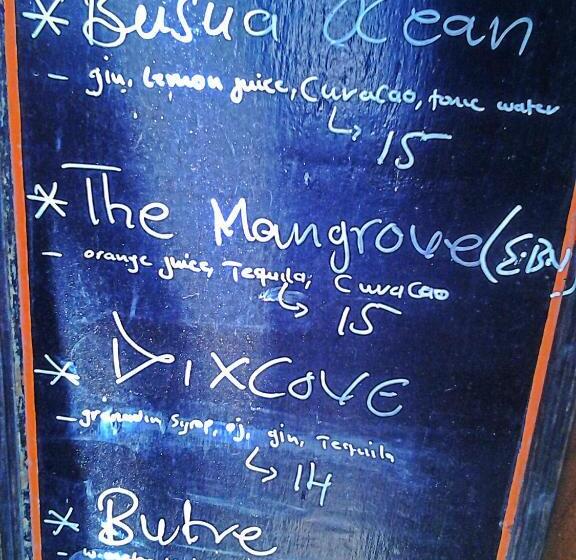 * Busua Ocean
- gin, Lemon juice, Curacao, tonic water
↳ 15
* The Mangrove
- orange juice, Tequila, Curacao
↳ 15
* Dixcove
- grenadin Syrup, oj, gin, Tequila
↳ 14
* Butre